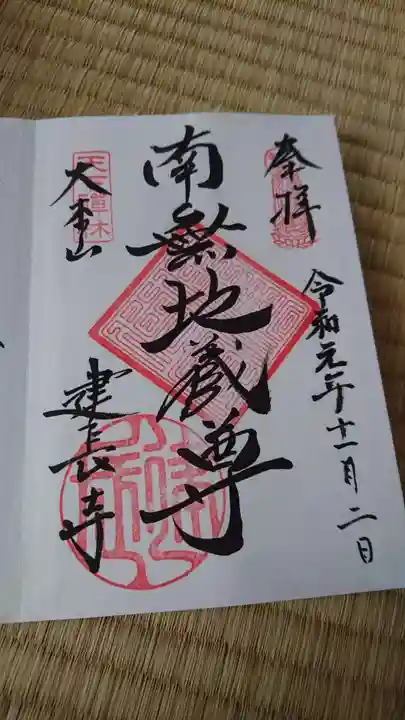 奉拝
令和元年十一月二日
南無地蔵尊
天下禅林
大本山
建長寺